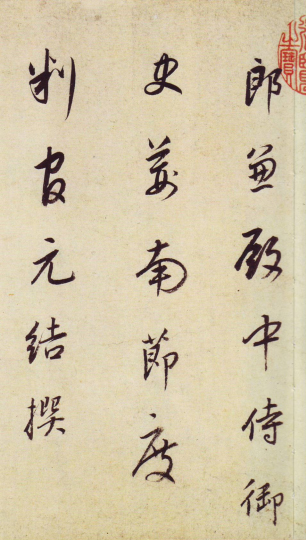 郎兼殿中侍御
史荊南節度
判官元結撰